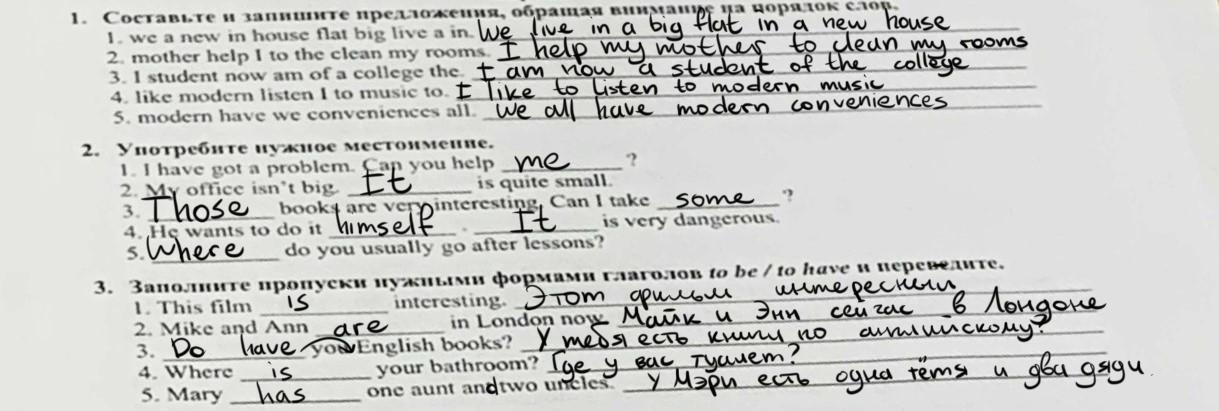 1. Составьте и запишите предложения, обращая внимание на порядок слов.
1. we a new in house flat big live a in. We live in a big flat in a new house
2. mother help I to the clean my rooms. I help my mother to clean my rooms
3. I student now am of a college the. I am now a student of the college
4. like modern listen I to music to. I like to listen to modern music
5. modern have we conveniences all. We all have modern conveniences
2. Употребите нужное местоимение.
1. I have got a problem. Can you help me ?
2. My office isn't big. It is quite small.
3. Those books are very interesting. Can I take some ?
4. He wants to do it himself . It is very dangerous.
5. Where do you usually go after lessons?
3. Заполните пропуски нужными формами глаголов to be / to have и переведите.
1. This film is interesting. Этот фильм интересный
2. Mike and Ann are in London now. Майк и Энн сейчас в Лондоне
3. Do have you English books? У тебя есть книги по английскому?
4. Where is your bathroom? Где у вас туалет?
5. Mary has one aunt and two uncles. У Мэри есть одна тётя и два дяди.